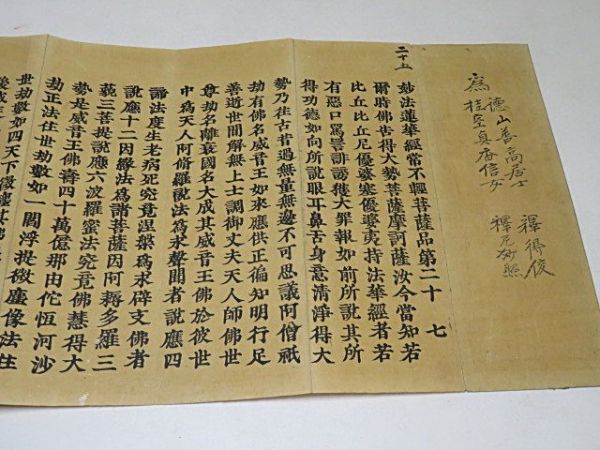 為
德山善高居士
桂室貞香信女
釋得俊
釋尼妙照
二十五
妙法蓮華經常不輕菩薩品第二十 七
爾時佛告得大勢菩薩摩訶薩汝今當知若
比丘比丘尼優婆塞優婆夷持法華經者若
有惡口罵詈誹謗獲大罪報如前所說其所
得功德如向所說眼耳鼻舌身意清淨得大
勢乃往古昔過無量無邊不可思議阿僧祇
劫有佛名威音王如來應供正徧知明行足
善逝世間解無上士調御丈夫天人師佛世
尊劫名離衰國名大成其威音王佛於彼世
中為天人阿脩羅說法為求聲聞者說應四
諦法度生老病死究竟涅槃為求辟支佛者
說應十二因緣法為諸菩薩因阿耨多羅三
藐三菩提說應六波羅蜜法究竟佛慧得大
勢是威音王佛壽四十萬億那由佗恒河沙
劫正法住世劫數如一閻浮提微塵像法住
世劫數如四天下微塵其佛